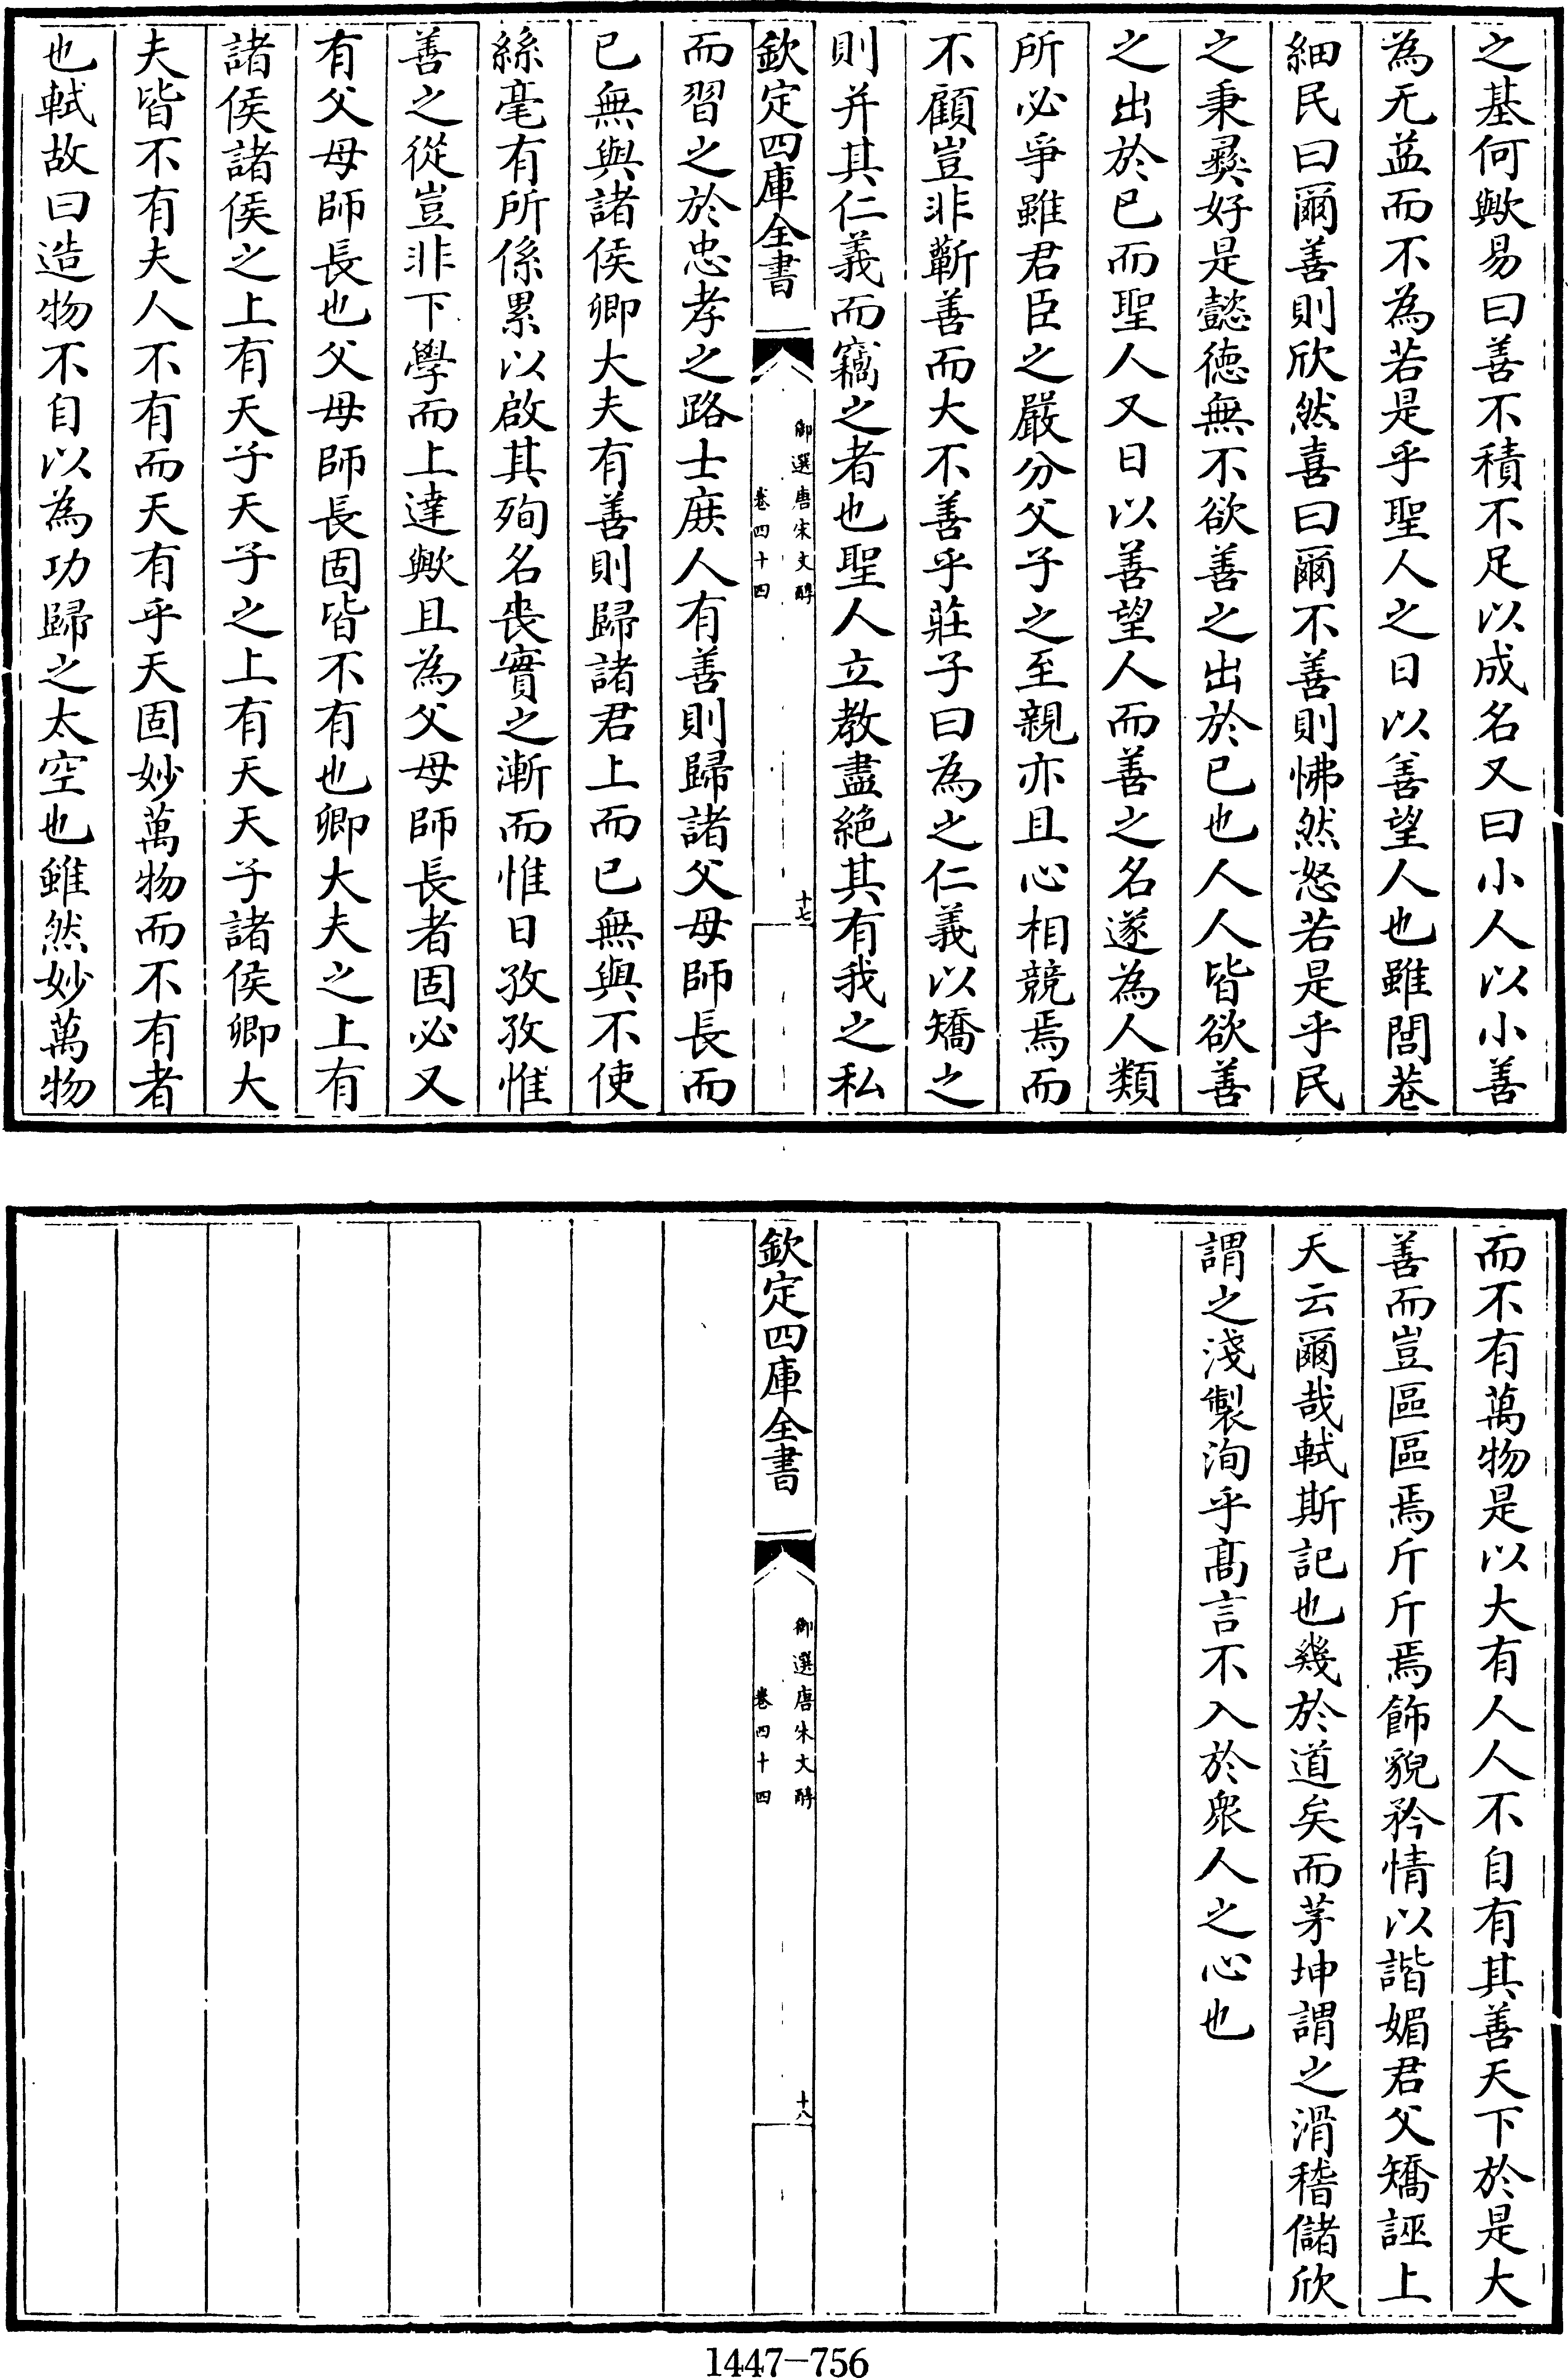 之基何歟易曰善不積不足以成名又曰小人以小善
為无益而不為若是乎聖人之日以善望人也雖閭巷
細民曰爾善則欣然喜曰爾不善則怫然怒若是乎民
之秉彛好是懿德無不欲善之出於已也人人皆欲善
之出於已而聖人又日以善望人而善之名遂為人類
所必爭雖君臣之嚴分父子之至親亦且心相競焉而
不顧豈非蘄善而大不善乎莊子曰為之仁義以矯之
則并其仁義而竊之者也聖人立教盡絶其有我之私
欽定四庫全書
御選唐宋文醇
卷四十四
十七
而習之於忠孝之路士庻人有善則歸諸父母師長而
已無與諸侯卿大夫有善則歸諸君上而已無與不使
絲毫有所係累以啟其殉名喪實之漸而惟日孜孜惟
善之從豈非下學而上達歟且為父母師長者固必又
有父母師長也父母師長固皆不有也卿大夫之上有
諸侯諸侯之上有天子天子之上有天天子諸侯卿大
夫皆不有夫人不有而天有乎天固妙萬物而不有者
也軾故曰造物不自以為功歸之太空也雖然妙萬物
而不有萬物是以大有人人不自有其善天下於是大
善而豈區區焉斤斤焉飾貌矜情以諧媚君父矯誣上
天云爾哉軾斯記也幾於道矣而茅坤謂之滑稽儲欣
謂之淺製洵乎髙言不入於衆人之心也
欽定四庫全書
御選唐宋文醇
卷四十四
十八
1447-756